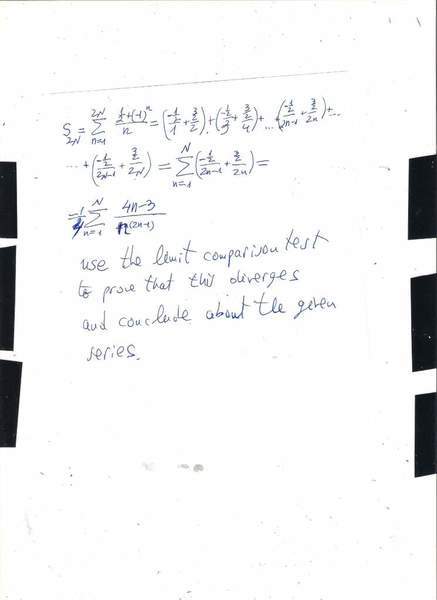 S_{2N} = \sum_{n=1}^{2N} \frac{\frac{1}{2}+(-1)^n}{n} = \left(\frac{-\frac{1}{2}}{1}+\frac{\frac{3}{2}}{2}\right)+\left(\frac{-\frac{1}{2}}{3}+\frac{\frac{3}{2}}{4}\right)+\dots\left(\frac{-\frac{1}{2}}{2n-1}+\frac{\frac{3}{2}}{2n}\right)+\dots
\dots+\left(\frac{-\frac{1}{2}}{2N-1}+\frac{\frac{3}{2}}{2N}\right) = \sum_{n=1}^{N}\left(\frac{-\frac{1}{2}}{2n-1}+\frac{\frac{3}{2}}{2n}\right) =
= \frac{1}{4}\sum_{n=1}^{N} \frac{4n-3}{n(2n-1)}
use the limit comparison test
to prove that this diverges
and conclude about the given
series.